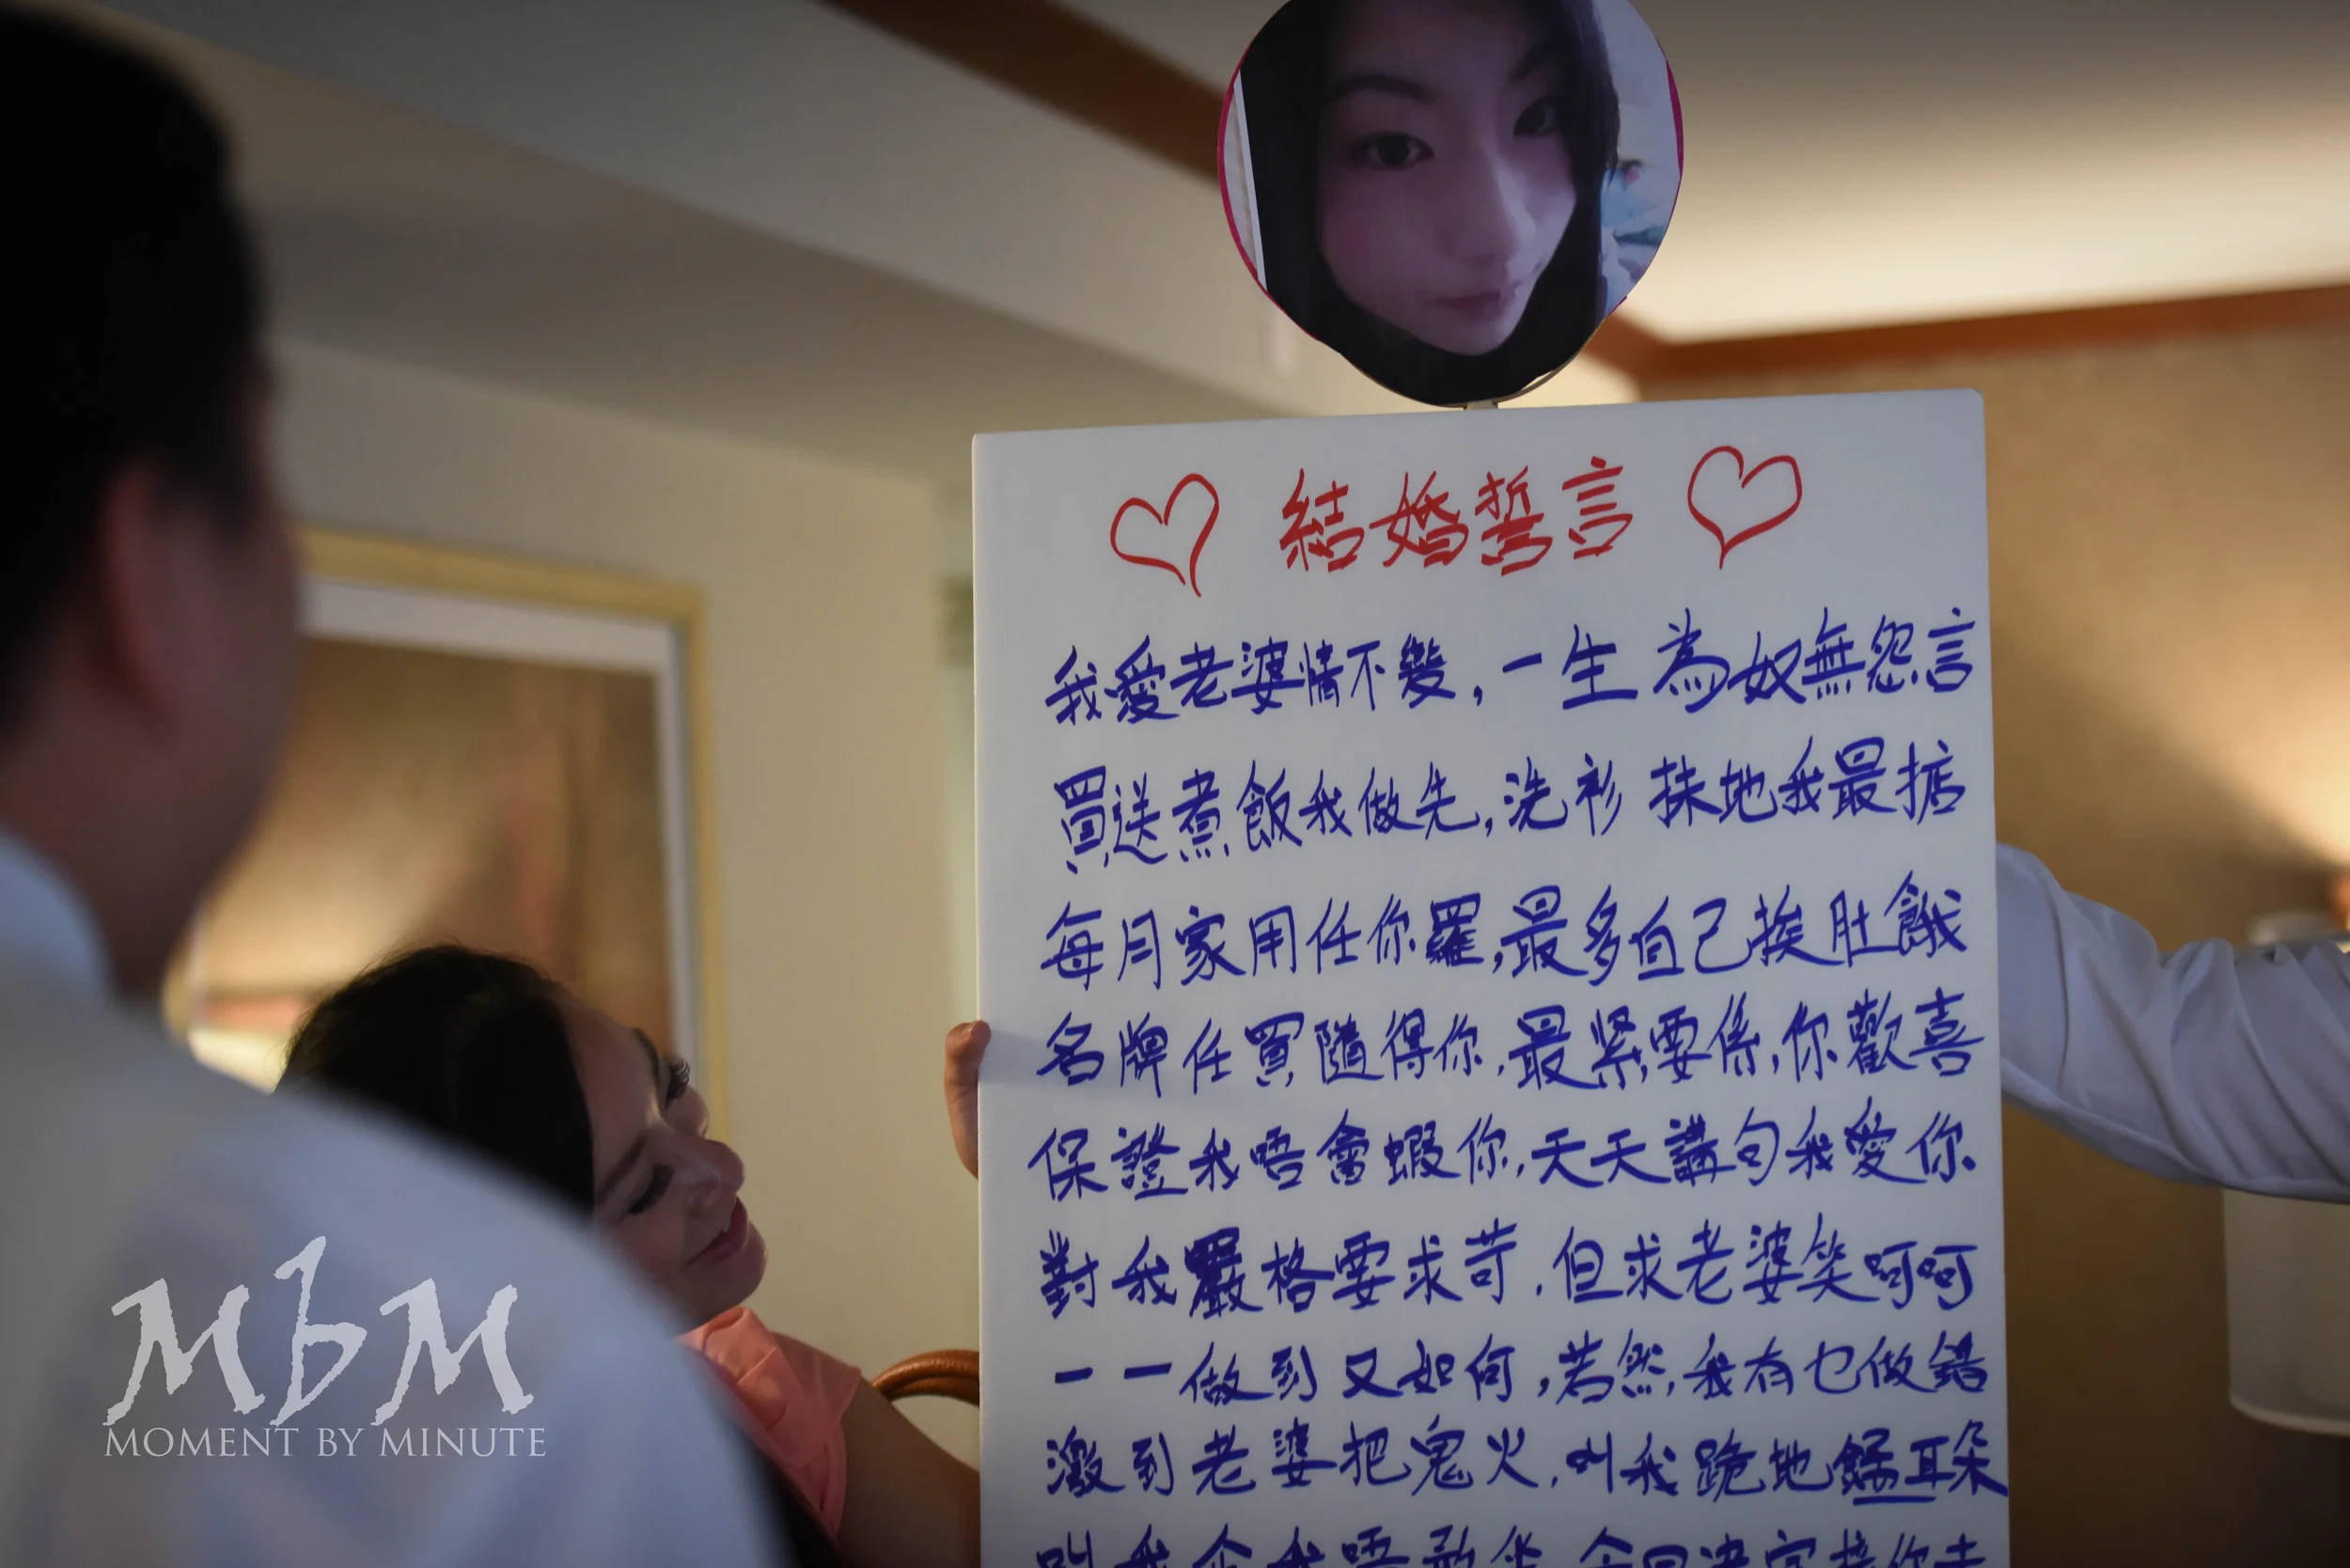 結婚誓言
我愛老婆情不變,一生為奴無怨言
買送煮飯我做先,洗衫抹地我最掂
每月家用任你羅,最多自己挨肚餓
名牌任買隨得你,最緊要係,你歡喜
保證我唔會蝦你,天天講句我愛你.
對我嚴格要求苛.但求老婆笑呵呵
一一做到又如何,若然我有乜做錯
激到老婆把鬼火,叫我跪地 耳朵
叫我企我唔敢坐 今日決定接你走
MbM
MOMENT BY MINUTE